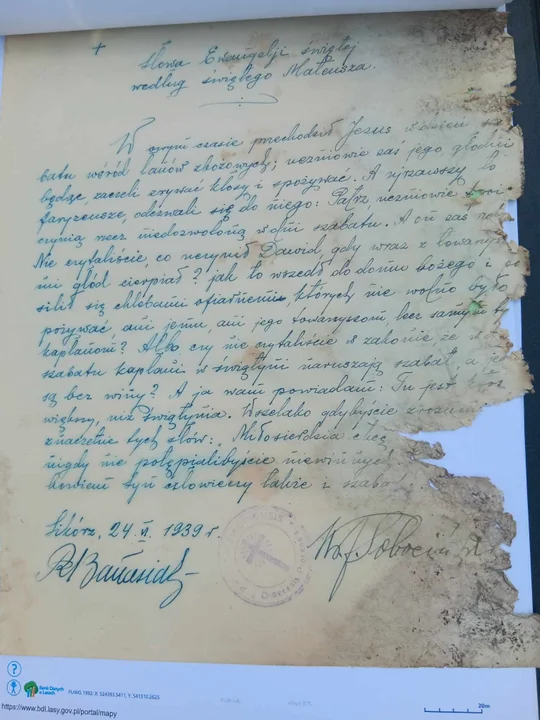 +
Słowa Ewangelji świętej
według świętego Mateusza.
W owym czasie przechodził Jezus w dzień sa-
batu wśród łanów zbożowych; uczniowie zaś jego głodni
będąc zaczęli zrywać kłosy i spożywać. A ujrzawszy to
faryzeusze, odezwali się do niego: Patrz, uczniowie twoi
czynią rzecz niedozwoloną w dni szabatu. A on zaś
Nie czytaliście, co uczynił Dawid, gdy wraz z towarzysz
mi głód cierpiał? jak to wszedł do domu bożego i
silił się chlebami ofiarnemi, których nie wolno było
pożywać, ani jemu, ani jego towarzyszom, lecz samym
kapłanom? Albo czy nie czytaliście w zakonie, że w
szabatu kapłani w świątyni naruszają szabat, a
są bez winy? A ja wam powiadam: Tu jest
większy, niż świątynia. Wszelako gdybyście zrozumi
znaczenie tych słów: Miłosierdzia chcę
nigdy nie potępialibyście niewinnych
bowiem syn człowieczy także i szaba
Sikórz, 24. VI. 1939 r.
Bank Danych
o Lasach
PUWG 1992: X: 524393.5411, Y: 541310.2625
https://www.bdl.lasy.gov.pl/portal/mapy
20m